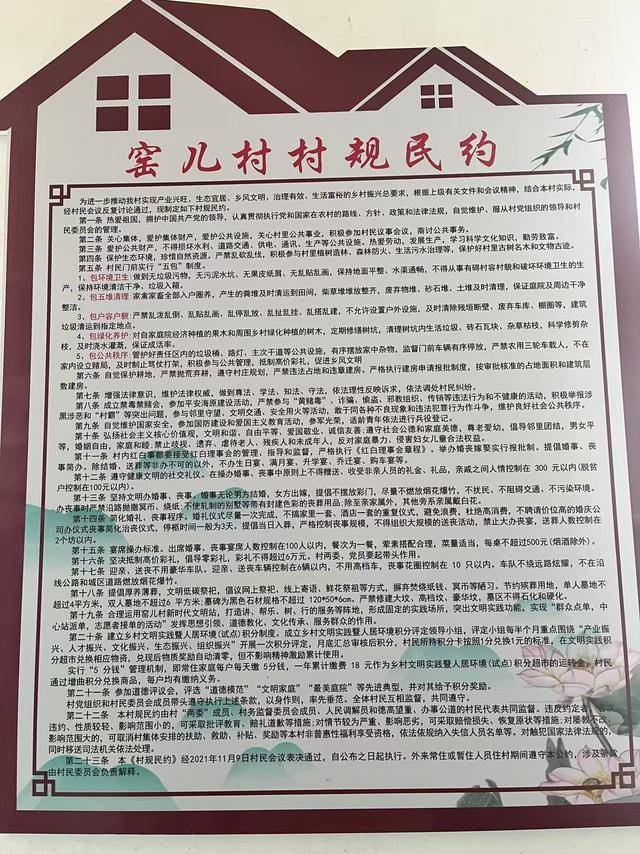 窑儿村村规民约
为进一步推动我村实现产业兴旺、生态宜居、乡风文明、治理有效、生活富裕的乡村振兴总要求，根据上级有关文件和会议精神，结合本村实际，
经村民会议反复讨论通过，现制定如下村规民约。
第一条 热爱祖国，拥护中国共产党的领导，认真贯彻执行党和国家在农村的路线、方针、政策和法律法规，自觉维护、服从村党组织的领导和
村民委员会的管理。
第二条 关心集体，爱护集体财产，爱护公共设施，关心村里公共事业，积极参加村民议事会议，商讨公共事务。
第三条 爱护公共财产，不得损坏水利、道路交通、供电、通讯、生产等公共设施。热爱劳动，发展生产，学习科学文化知识，勤劳致富。
第四条 保护生态环境，珍惜自然资源。严禁乱砍乱伐，积极参与村里植树造林、森林防火、生活污水治理等，保护好村里古树名木和文物古迹。
第五条 村民门前实行“五包”制度。
1、包环境卫生:做到无垃圾污物，无污泥水坑、无果皮纸屑、无乱贴乱画，保持地面平整、水渠通畅，不得从事有碍村容村貌和破坏环境卫生的生
产，保持环境清洁干净、垃圾入箱。
2、包五堆清理:家禽家畜全部入户圈养，产生的粪堆及时清运到田间，柴草堆堆放整齐，废弃物堆、砂石堆、土堆及时清理，保证庭院及周边干
净整洁。
3、包户容户貌:严禁乱泼乱倒、乱贴乱画、乱停乱放、乱扯乱挂、乱搭乱建，不允许设置户外设施，及时清除残垣断壁、废弃车库、棚圈等，建筑
垃圾清运到指定地点。
4、包绿化养护:对自家庭院经济种植的果木和周围乡村绿化种植的树木，定期修缮树坑，清理树坑内生活垃圾、砖石瓦块、杂草枯枝，科学修剪杂
枝，及时浇水灌溉，保证成活率。
5、包公共秩序:管护好责任区内的垃圾桶、路灯、主次干道等公共设施，有序摆放家中杂物，监督门前车辆有序停放，严禁农用三轮车载人，不在
家内设立赌局，及时制止骂仗打架，积极参与公共管理，抵制高价彩礼，促进乡风文明
第六条 自觉保护耕地，严禁抛荒弃耕，遵守村庄规划，严禁违法占地和违章建房。严格执行建房申请报批制度，按审批核准的占地面积和建筑层
数建房。
第七条 增强法律意识，维护法律权威，做到尊法、学法、知法、守法，依法理性反映诉求，依法调处村民纠纷。
第八条 成立禁毒禁赌会，参加平安海原建设活动，严禁参与“黄赌毒”、诈骗、偷盗、邪教组织、传销等违法行为和不健康的活动，积极举报涉
黑涉恶和“村霸”等突出问题，参与邻里守望、文明交通、安全用火等活动，敢于同各种不良现象和违法犯罪行为作斗争，维护良好社会公共秩序。
第九条 自觉维护国家安全，参加国防建设和爱国主义教育活动，参军光荣，适龄青年依法进行兵役登记。
第十条 弘扬社会主义核心价值观，文明和谐、自由平等、爱国敬业、诚信友善；遵守社会公德和家庭美德，尊老爱幼，倡导邻里团结，男女平
等，婚姻自由，家庭和睦；禁止歧视、遗弃、虐待老人、残疾人和未成年人，反对家庭暴力、侵害妇女儿童合法权益。
第十一条 村内红白事都要接受红白理事会的管理、指导和监督，严格执行《红白理事会章程》。举办婚丧嫁娶实行报批制，提倡婚事、丧
事简办。除结婚、送葬等非办不可的以外，不办生日宴、满月宴、升学宴、乔迁宴、购车宴等。
第十二条 遵守健康文明的社交礼仪。在操办婚事、丧事中原则上不得赠送、收受非亲人员的礼金、礼品，亲戚之间人情控制在 300 元以内(脱贫
户控制在100元以内)。
第十三条 坚持文明办婚事、丧事。婚事无论男方结婚，女方出嫁，提倡不摆放彩门，尽量不燃放烟花爆竹，不扰民、不阻碍交通、不污染环境。
办丧事时严禁沿路抛撒冥币、烧纸；不使轧制的别墅等带有封建色彩的丧葬用品；除至亲家属外，其他旁系亲属戴白花。
第十四条 简化婚礼、丧事程序。婚礼仪式尽量一次完成，不搞家里一套、酒店一套的重复仪式，避免浪费，杜绝高消费，不聘请价位高的婚庆公
司办仪式丧事简化治丧仪式，停柩时间一般为3天。提倡当日入葬，严格控制丧事规模，不得组织大规模的送丧活动，禁止大办丧宴，送葬人数控制在
2个坊以内。
第十五条 宴席操办标准。出席婚事、丧事宴席人数控制在100人以内，餐次为一餐，荤素搭配合理，菜量适当，每桌不超过500元(烟酒除外)。
第十六条 坚决抵制高价彩礼，倡导零彩礼，彩礼不得超过6万元。村两委、党员要起带头作用。
第十七条 迎亲、送丧不用豪华车队。迎亲、送丧车辆控制在6辆以内，不用高档车，丧事花圈控制在 10 只以内。车队不绕远路炫耀，不在沿
线公路和城区道路燃放烟花爆竹。
第十八条 提倡厚养薄葬，文明低碳祭祀，倡议网上祭祀、线上寄语、鲜花祭祖等方式，摒弃焚烧纸钱、冥币等陋习。节约殡葬用地，单人墓地不
超过4平方米，双人墓地不超过 6 平方米；墓碑为黑色石材规格不超过 120*50*6cm。严禁修建大坟、高档坟、豪华坟，墓区不得石化和硬化。
第十九条 合理运用窑儿村新时代文明站，打造讲、帮乐、树、行的服务等阵地，形成固定的实践场所，突出文明实践功能，实现“群众点单，中
心站派单，志愿者接单的活动”发挥思想引领、道德教化、文化传承、服务群众的作用。
第二十条 建立乡村文明实践暨人居环境(试点)积分制度。成立乡村文明实践暨人居环境积分评定领导小组，评定小组每半个月重点围绕“产业振
兴、人才振兴、文化振兴、生态振兴、组织振兴”开展一次积分评定，月底汇总审核后积分，村民所持积分卡按照1分兑换1元的标准，在文明实践积
分超市兑换相应物资，兑现后物质奖励自动清零，但不影响精神激励累计使用。
实行“5 分钱”管理机制，即常住家庭每户每天缴 5分钱，一年累计缴费 18 元作为乡村文明实践暨人居环境(试点)积分超市的运转金，村民
通过增曲积分兑换商品，每户均有缴纳义务。
第二十一条 参加道德评议会，评选“道德模范”“文明家庭”“最美庭院”等先进典型，并对其给予积分奖励。
村党组织和村民委员会成员带头遵守执行上述条款，以身作则，率先垂范。全体村民互相监督，共同遵守。
第二十二条 本村规民约由村“两委”成员、村务监督委员会成员、人民调解员和德高望重、办事公道的村民代表共同监督。违反约定者，首次
违约、性质较轻、影响范围小的，可采取批评教育、赔礼道歉等措施；对情节较为严重、影响恶劣，可采取赔偿损失、恢复原状等措施；对屡教不改、
影响范围大的，可取消村集体安排的扶救、救助、补贴、奖励等本村非普惠性福利享受资格，依法依规纳入失信人员名单等。对触犯国家法律法规的，
同时移送司法机关依法处理。
第二十三条 本《村规民约》经2021年11月9日村民会议表决通过，自公布之日起执行。外来常住或暂住人员住村期间遵守本公约，涉及条款
由村民委员会负责解释。